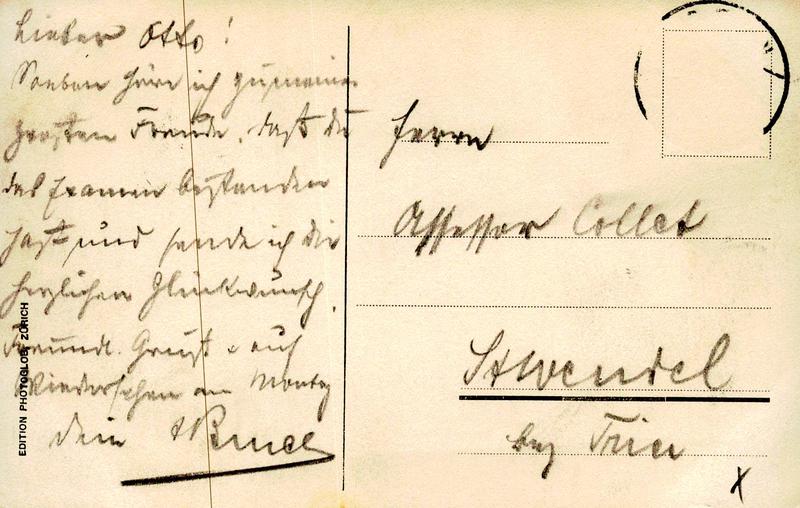 Lieber Otto!
Soeben höre ich zu meiner
großen Freude, daß du
das Examen bestanden
hast und sende ich dir
herzlichen Glückwunsch.
Freundl. Gruß u auf
Wiedersehen am Montag
dein
EDITION PHOTOGLOB, ZÜRICH
Herrn
Assessor Collet
St Wendel
bez Trier
X